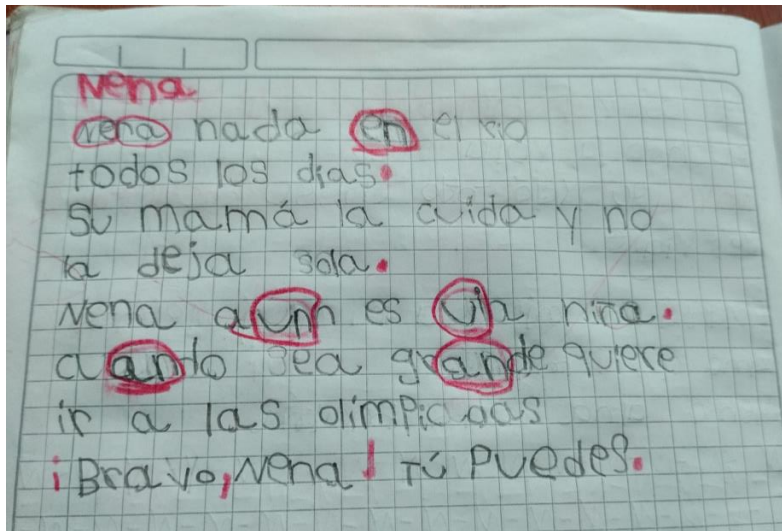 Nena
Nena nada en el rio
todos los dias.
Su mamá la cuida y no
la deja sola.
Nena aunn es una niña.
cuando sea grande quiere
ir a las olimpiadas
¡Bravo, Nena! Tú puedes.